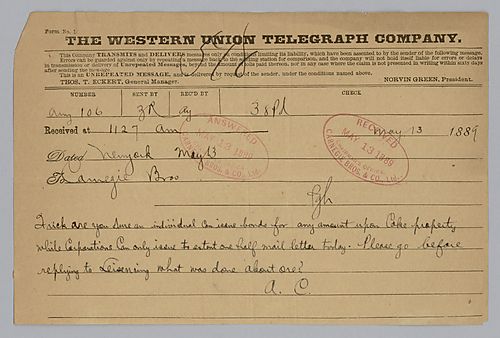 Form No. 1.
THE WESTERN UNION TELEGRAPH COMPANY.
This Company TRANSMITS and DELIVERS messages only on conditions limiting its liability, which have been assented to by the sender of the following message.
Errors can be guarded against only by repeating a message back to the sending station for comparison, and the company will not hold itself liable for errors or delays
in transmission or delivery of Unrepeated Messages, beyond the amount of tolls paid thereon, nor in any case where the claim is not presented in writing within sixty days
after sending the message.
This is an UNREPEATED MESSAGE, and is delivered by request of the sender, under the conditions named above.
THOS. T. ECKERT, General Manager. NORVIN GREEN, President.
NUMBER SENT BY REC'D BY CHECK
106 ZR ay 38 Pd
Received at 1127 am May 13 1889
Dated Newyork May 13
To Carnegie Bros
Pgh
ANSWERED
MAY 13 1889
CARNEGIE BROS. & CO., Ltd.
RECEIVED
MAY 13 1889
CARNEGIE BROS. & CO., Ltd.
Frick are you sure an individual can issue bonds for any amount upon Coke property
while Corporations Can only issue to extent one half mail letter today. Please go before
replying to Leisenring what was done about ore?
A. C.